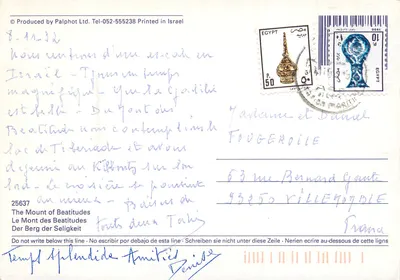 © Produced by Palphot Ltd. Tel-052-555238 Printed in Israel
8.11.92
Nous rentrons d'une escale en
Israël - Temps
magnifique - Que la Galilée
est belle - Du Mont des
Béatitudes nous contemplions le
lac de Tibériade et avons
déjeuné au Kibboutz sur le
lac - La croisière se poursuit
au mieux - Baisers de
tous deux
Temps splendide Amitiés
Denise
25637
The Mount of Beatitudes
Le Mont des Beatitudes
Der Berg der Seligkeit
EGYPT
50
EGYPT
Jacqueline et Daniel
FOUGEROLLE
63 rue Bernard Gante
93250 VILLEMOMBLE
France
Do not write below this line - No escribir por debajo de esta linea | Schreiben sie nicht unter diese Zeile - Nerien ecrire au-dessous de cette ligne